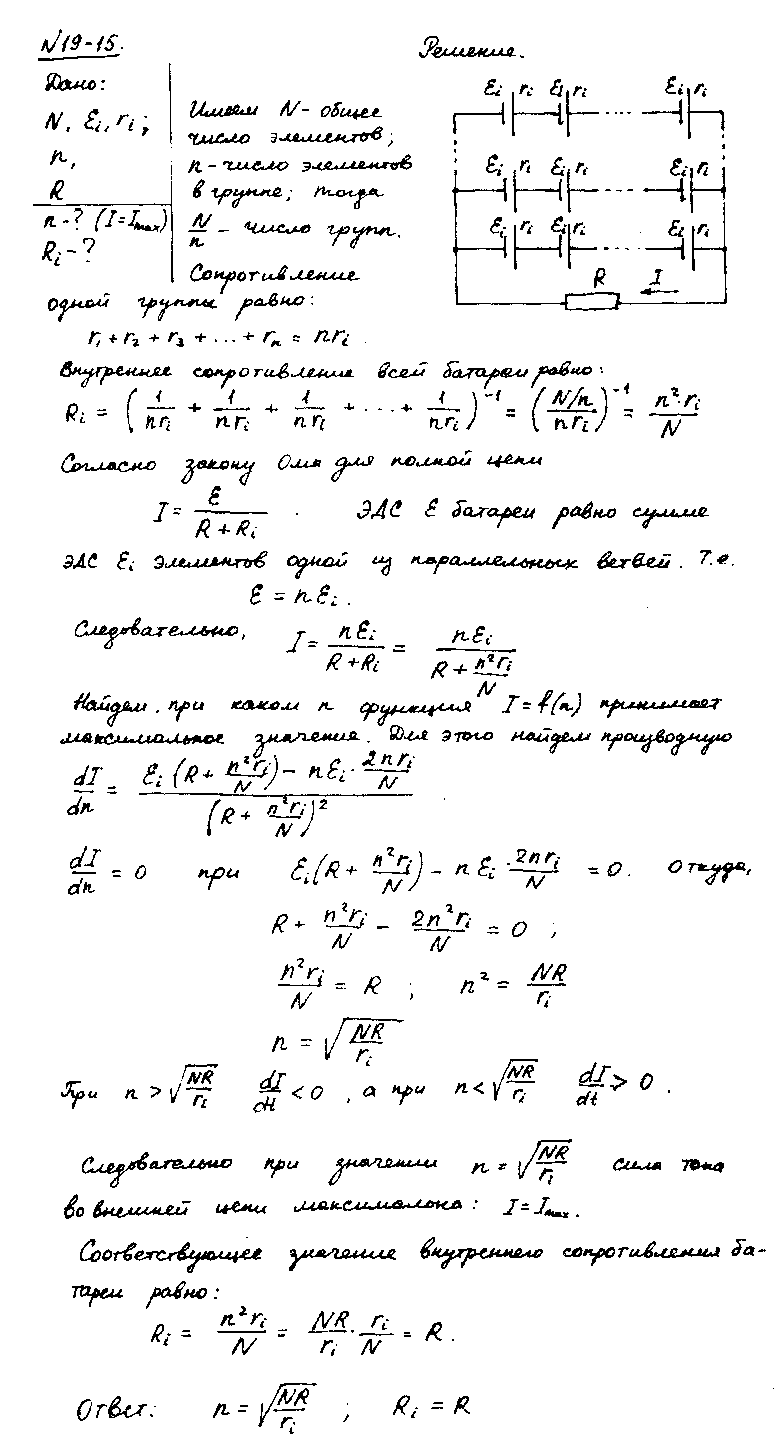 N19-15.
Решение.
Дано:
N, Ɛi, ri;
n,
R
n-? (I=Imax)
Ri-?
Имеем N - общее
число элементов;
n - число элементов
в группе; тогда
N/n - число групп.
Сопротивление
Ɛi ri Ɛi ri Ɛi ri
Ɛi ri Ɛi ri Ɛi ri
Ɛi ri Ɛi ri Ɛi ri
R I
одной группы равно:
r1 + r2 + r3 + ... + rn = nri.
Внутреннее сопротивление всей батареи равно:
Ri = (1/nri + 1/nri + 1/nri + ... + 1/nri)^-1 = ((N/n)/nri)^-1 = n²·ri/N
Согласно закону Ома для полной цепи
I = Ɛ/(R+Ri). ЭДС Ɛ батареи равно сумме
ЭДС Ɛi элементов одной из параллельных ветвей. Т.е.
Ɛ = nƐi.
Следовательно, I = nƐi/(R+Ri) = nƐi/(R + n²ri/N)
Найдем, при каком n функция I=f(n) принимает
максимальное значение. Для этого найдем прозводную
dI/dn = (Ɛi(R + n²ri/N) - nƐi·2nri/N)/(R + n²ri/N)²
dI/dn = 0 при Ɛi(R + n²ri/N) - nƐi·2nri/N = 0. Откуда,
R + n²ri/N - 2n²ri/N = 0;
n²ri/N = R; n² = NR/ri
n = √(NR/ri)
При n > √(NR/ri) dI/dt < 0, а при n < √(NR/ri) dI/dt > 0.
Следовательно при значении n = √(NR/ri) сила тока
во внешней цепи максимальна: I=Imax.
Соответствующее значение внутреннего сопротивления ба-
тареи равно:
Ri = n²ri/N = NR/ri · ri/N = R.
Ответ: n = √(NR/ri); Ri = R